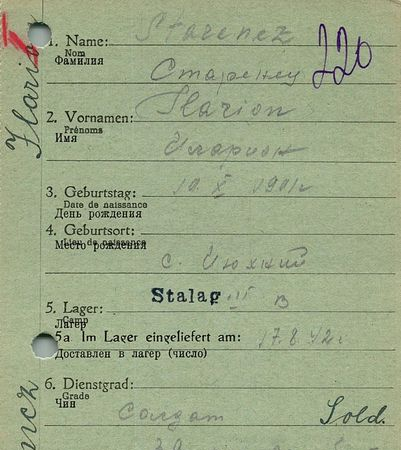 Ilarion
1. Name: Starenez
Nom
Фамилия
Старенец
220
2. Vornamen: Ilarion
Prénoms
Имя
Иларион
3. Geburtstag: 10. X 1901г
Date de naissance
День рождения
4. Geburtsort:
Lieu de naissance
Место рождения
с.
Stalag III B
5. Lager:
Camp
Лагерь
5a Im Lager eingeliefert am: 17.8.42г.
Доставлен в лагерь (число)
6. Dienstgrad:
Grade
Чин
Солдат Sold.